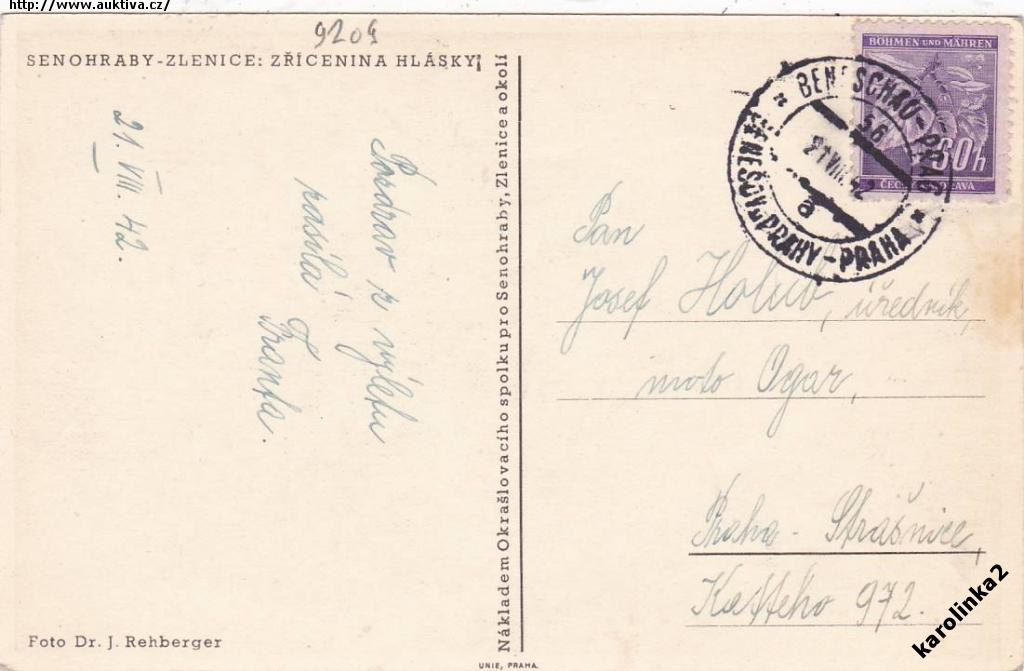 http://www.auktiva.cz/
9209
SENOHRABY-ZLENICE: ZŘÍCENINA HLÁSKY
21. VIII. 42.
Pozdrav z výletu
zasílá
Franta.
Foto Dr. J. Rehberger
Nákladem Okrašlovacího spolku pro Senohraby, Zlenice a okolí
UNIE, PRAHA.
BÖHMEN UND MÄHREN
60h
ČECHY A MORAVA
BENESCHAU-PRAG
56
21 VIII 42
a
BENEŠOV U PRAHY-PRAHA
Pan
Josef Holub, úředník,
moto Ogar,
Praha - Strašnice,
972.
karolinka2